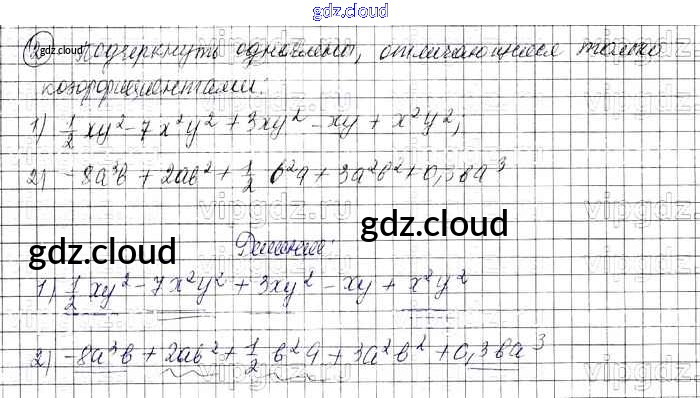 gdz.cloud
2) gdz.cloud Подчеркнуть одночлены, отличающиеся только
коэффициентами:
1) 1/2 xy² - 7x²y² + 3xy² - xy + x²y²;
2) -8a³b + 2ab² + 1/2 b²a + 3a²b² + 0,3ba³
vipgdz.ru
gdz.cloud
gdz.cloud
Решение:
1) 1/2 xy² - 7x²y² + 3xy² - xy + x²y²
2) -8a³b + 2ab² + 1/2 b²a + 3a²b² + 0,3ba³
vipgdz.ru